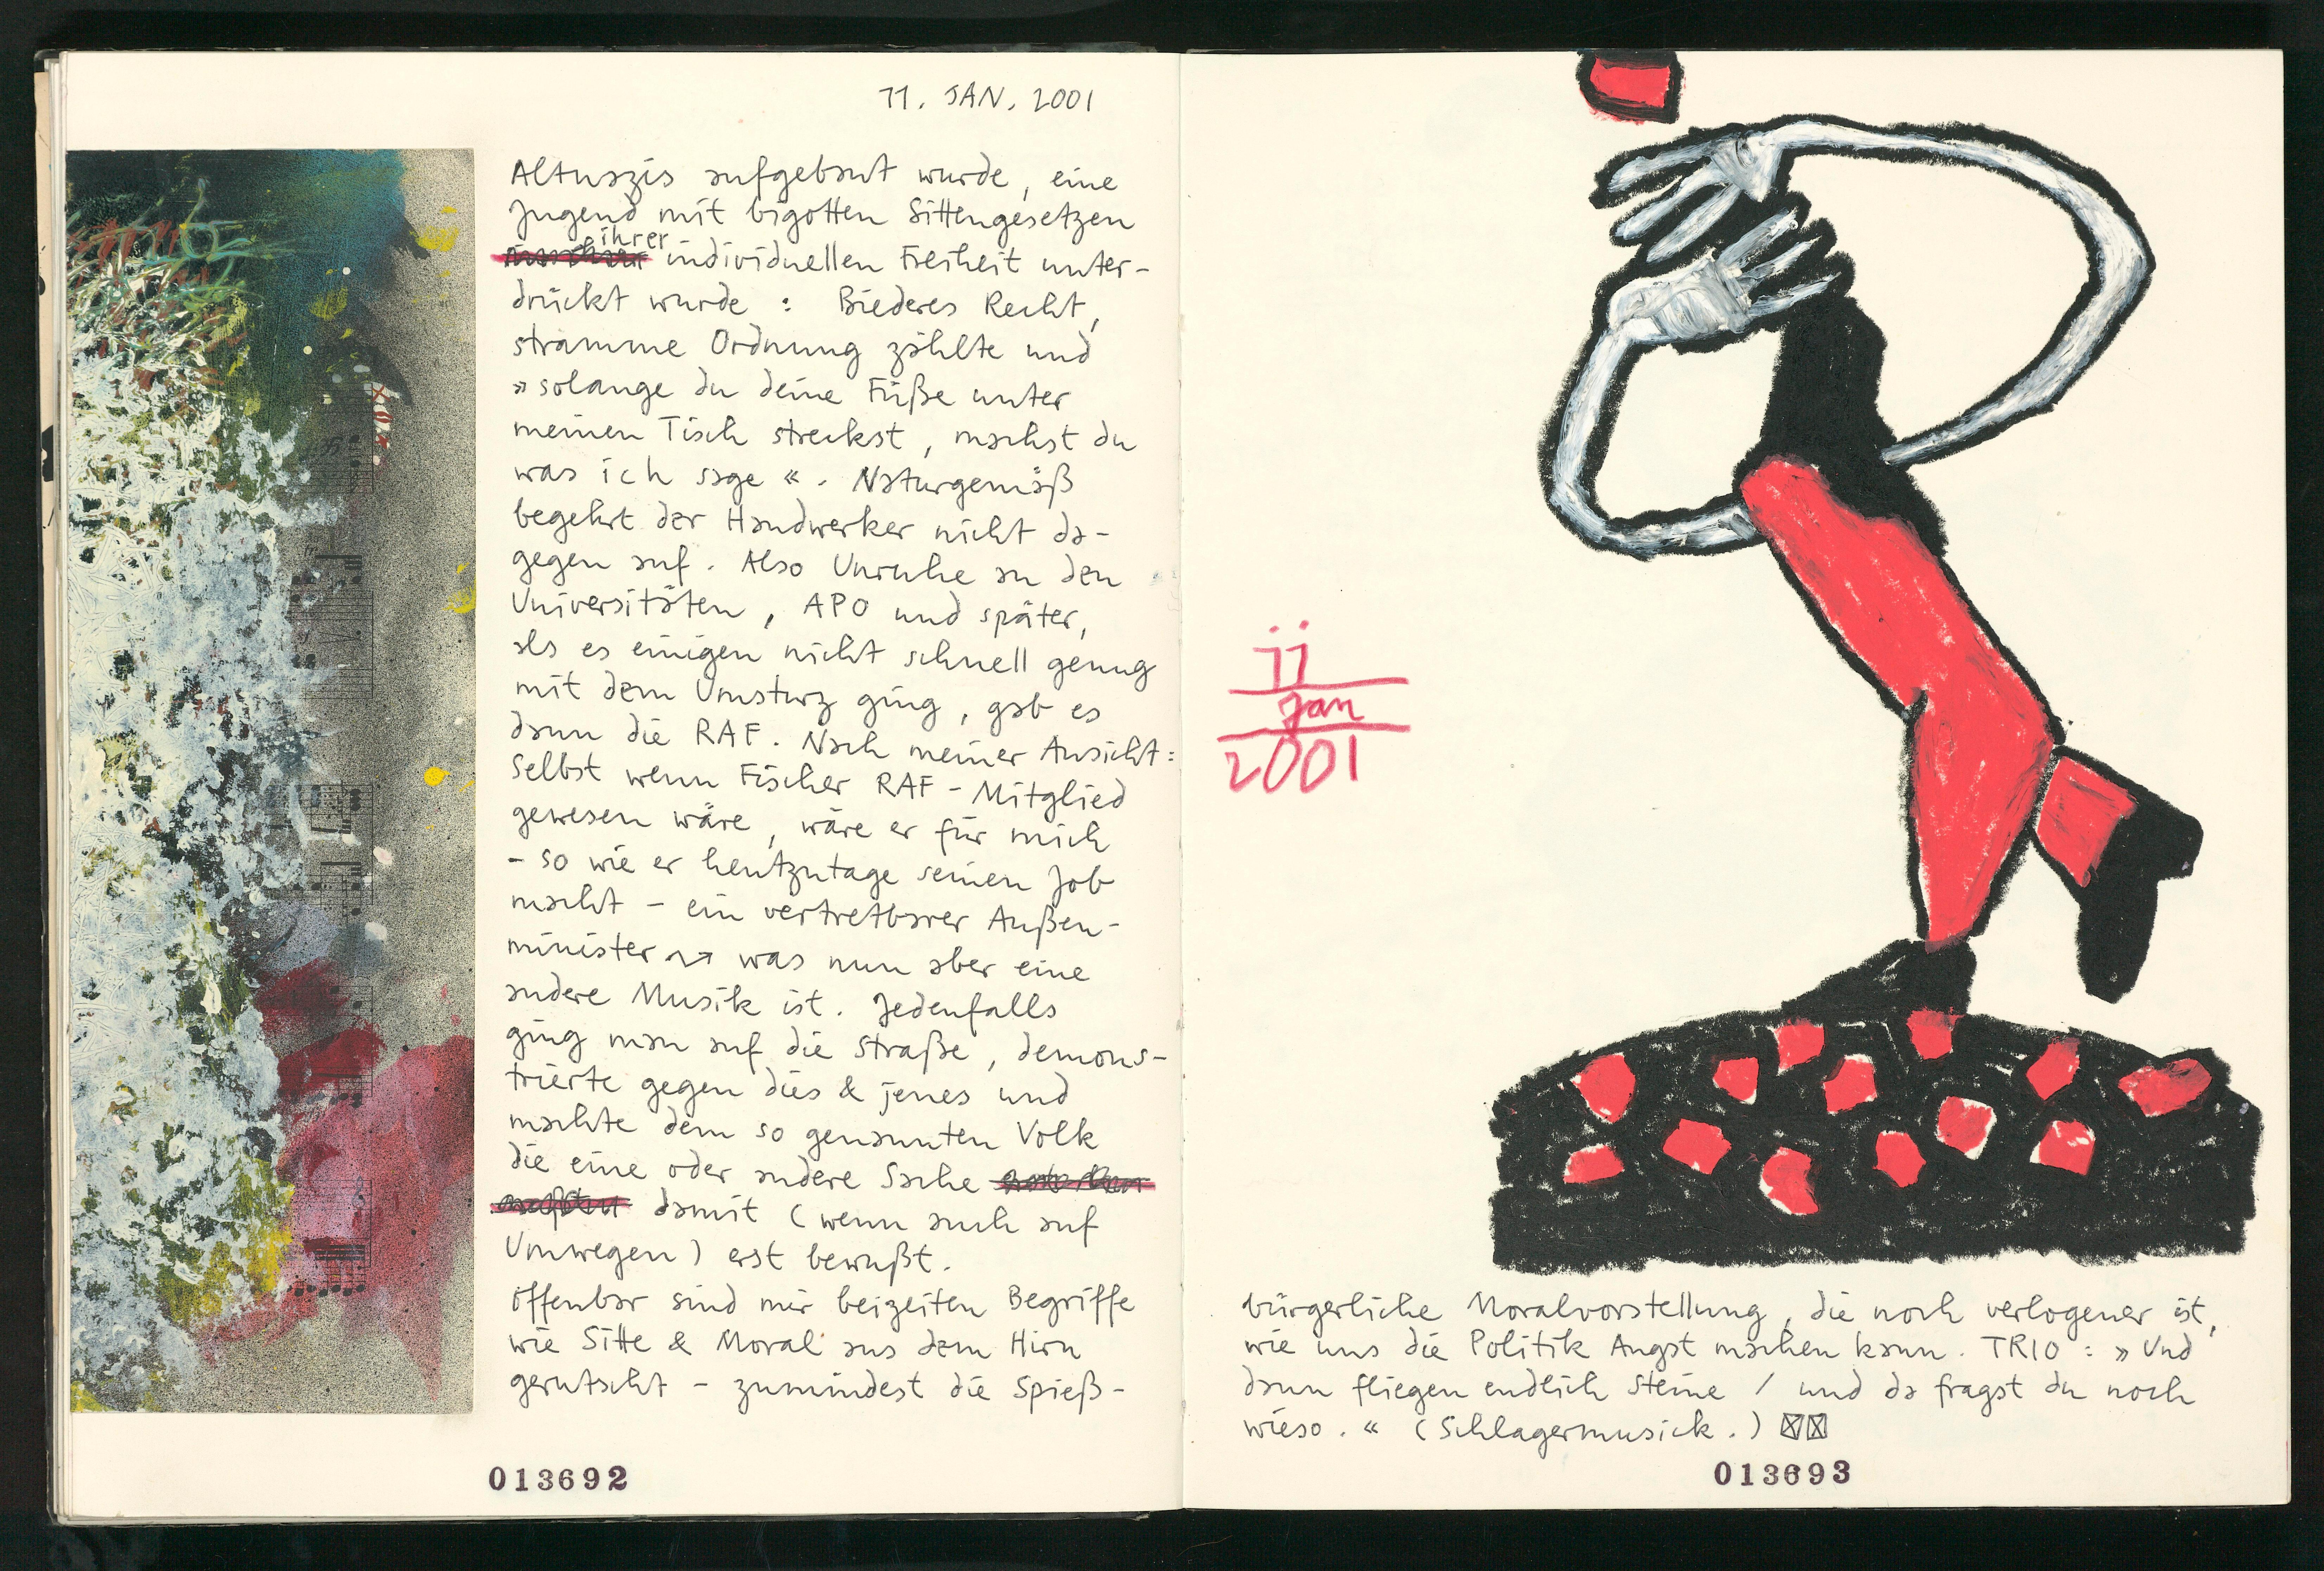 11. JAN. 2001
Altnazis aufgebaut wurde, eine
Jugend mit bigotten Sittengesetzen
ihrer
individuellen Freiheit unter-
drückt wurde : Biederes Recht,
stramme Ordnung zählte und
»solange du deine Füße unter
meinen Tisch streckst, machst du
was ich sage«. Naturgemäß
begehrt der Handwerker nicht da-
gegen auf. Also Unruhe an den
Universitäten, APO und später,
als es einigen nicht schnell genug
mit dem Umsturz ging, gab es
dann die RAF. Nach meiner Ansicht:
Selbst wenn Fischer RAF-Mitglied
gewesen wäre, wäre er für mich
- so wie er heutzutage seinen Job
macht - ein vertretbarer Außen-
minister ⇝ was nun aber eine
andere Musik ist. Jedenfalls
ging man auf die Straße, demons-
trierte gegen dies & jenes und
machte dem so genannten Volk
die eine oder andere Sache
damit (wenn auch auf
Umwegen) erst bewußt.
Offenbar sind mir beizeiten Begriffe
wie Sitte & Moral aus dem Hirn
gerutscht - zumindest die Spieß-
013692
11
Jan
2001
bürgerliche Moralvorstellung, die noch verlogener ist,
wie uns die Politik Angst machen kann. TRIO : »Und
dann fliegen endlich Steine / und da fragst du noch
wieso.« (Schlagermusick.) ☒☒
013693